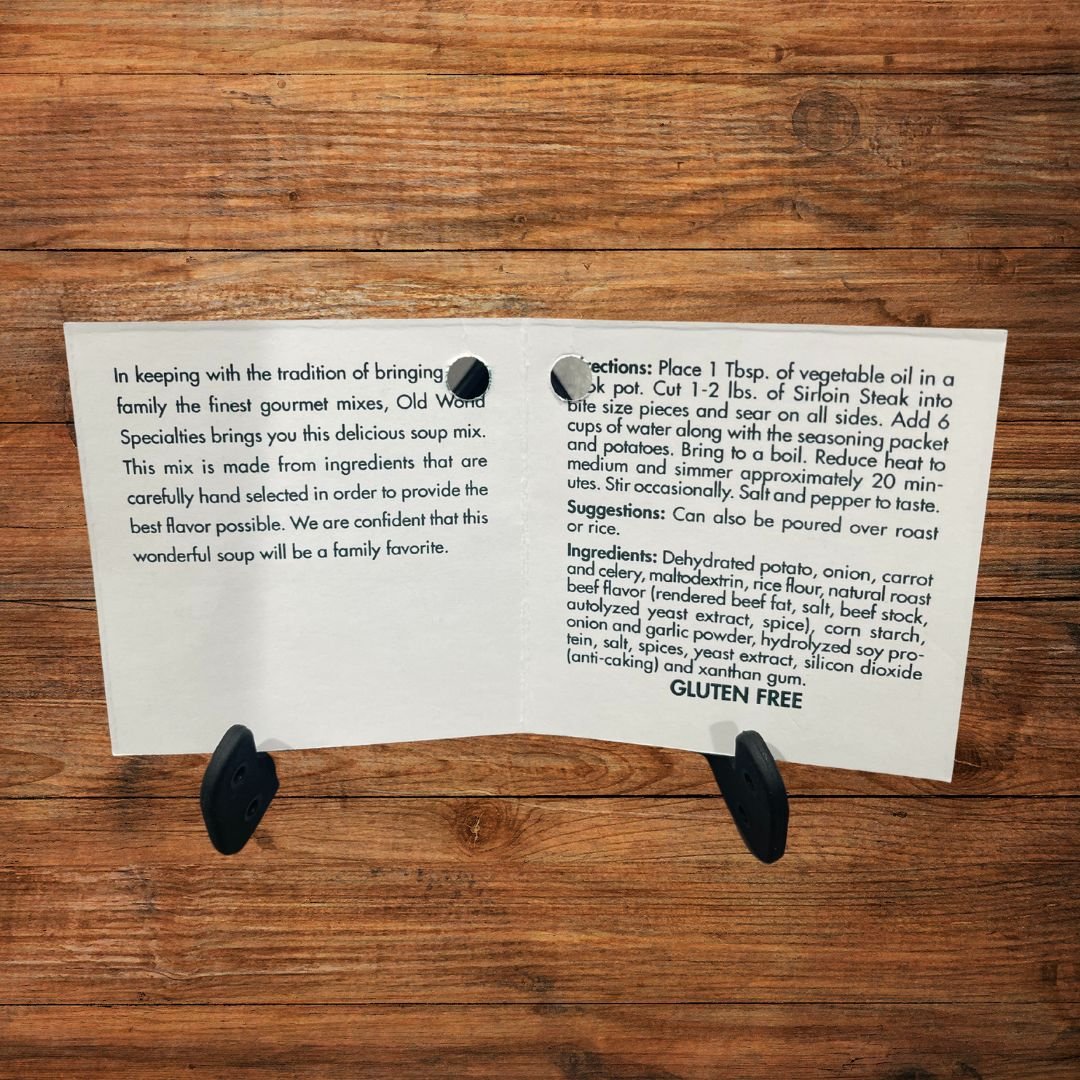 In keeping with the tradition of bringing
family the finest gourmet mixes, Old World
Specialties brings you this delicious soup mix.
This mix is made from ingredients that are
carefully hand selected in order to provide the
best flavor possible. We are confident that this
wonderful soup will be a family favorite.
Place 1 Tbsp. of vegetable oil in a
pot. Cut 1-2 lbs. of Sirloin Steak into
bite size pieces and sear on all sides. Add 6
cups of water along with the seasoning packet
and potatoes. Bring to a boil. Reduce heat to
medium and simmer approximately 20 min-
utes. Stir occasionally. Salt and pepper to taste.
Suggestions: Can also be poured over roast
or rice.
Ingredients: Dehydrated potato, onion, carrot
and celery, maltodextrin, rice flour, natural roast
beef flavor (rendered beef fat, salt, beef stock,
autolyzed yeast extract, spice), corn starch,
onion and garlic powder, hydrolyzed soy pro-
tein, salt, spices, yeast extract, silicon dioxide
(anti-caking) and xanthan gum.
GLUTEN FREE